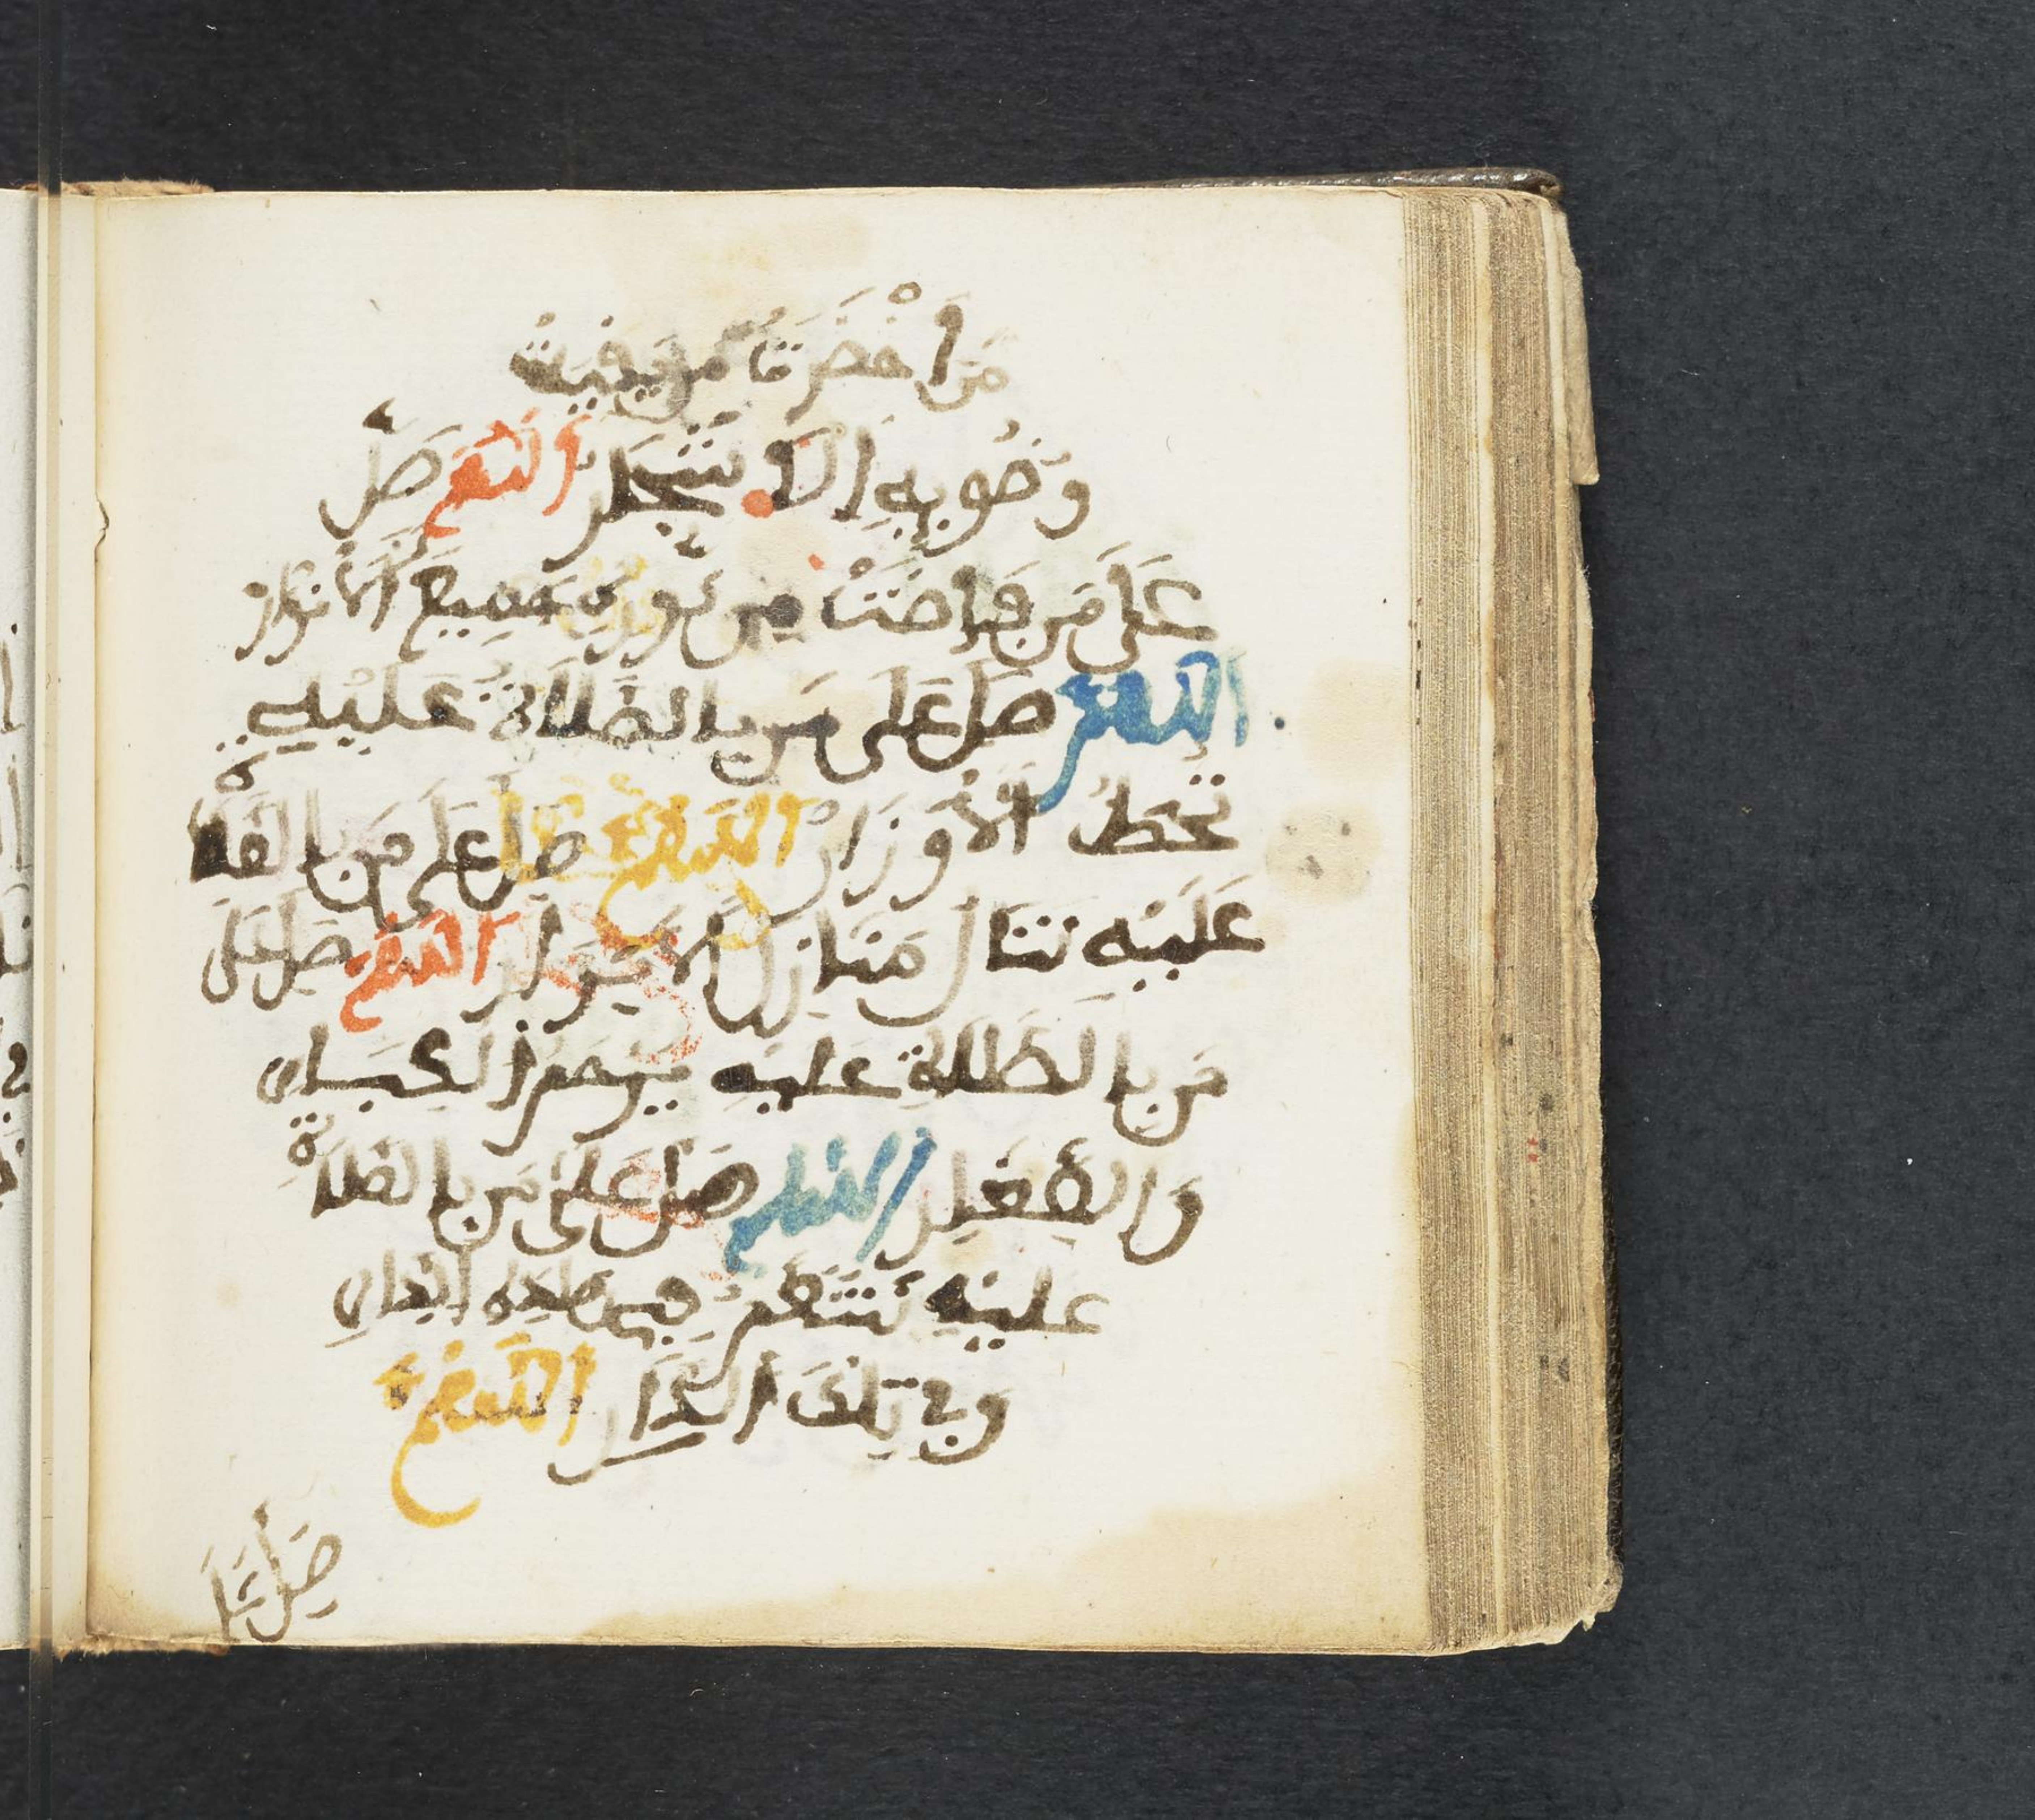 مَن اخْضَرَّتْ مِن بَقِيَّةِ
وَضُوئِهِ الاشجار اللهم صل
عَلَى مَن فَاضَتْ مِن نُورِهِ جَمِيعُ الأَنْوَارْ
اللهم صَلِّ عَلَى مَن بِالصَّلَاةِ عَلَيْهِ
تُحَطُّ الأَوْزَارْ اللهم صَلِّ عَلَى مَن بِالصَّلَاةِ
عَلَيْهِ تُنَالُ مَنَازِلُ الأَبْرَارْ اللهم صَلِّ عَلَى
مَن بِالصَّلَاةِ عَلَيْهِ يُرْحَمُ الكِبَارُ
وَالصِّغَارْ اللهم صَلِّ عَلَى مَن بِالصَّلَاةِ
عَلَيْهِ نَتَنَعَّمُ فِي هَاذِهِ الدَّارِ
وَفِي تِلْكَ الدَّارْ اللهم
صَلِّ عَلَى